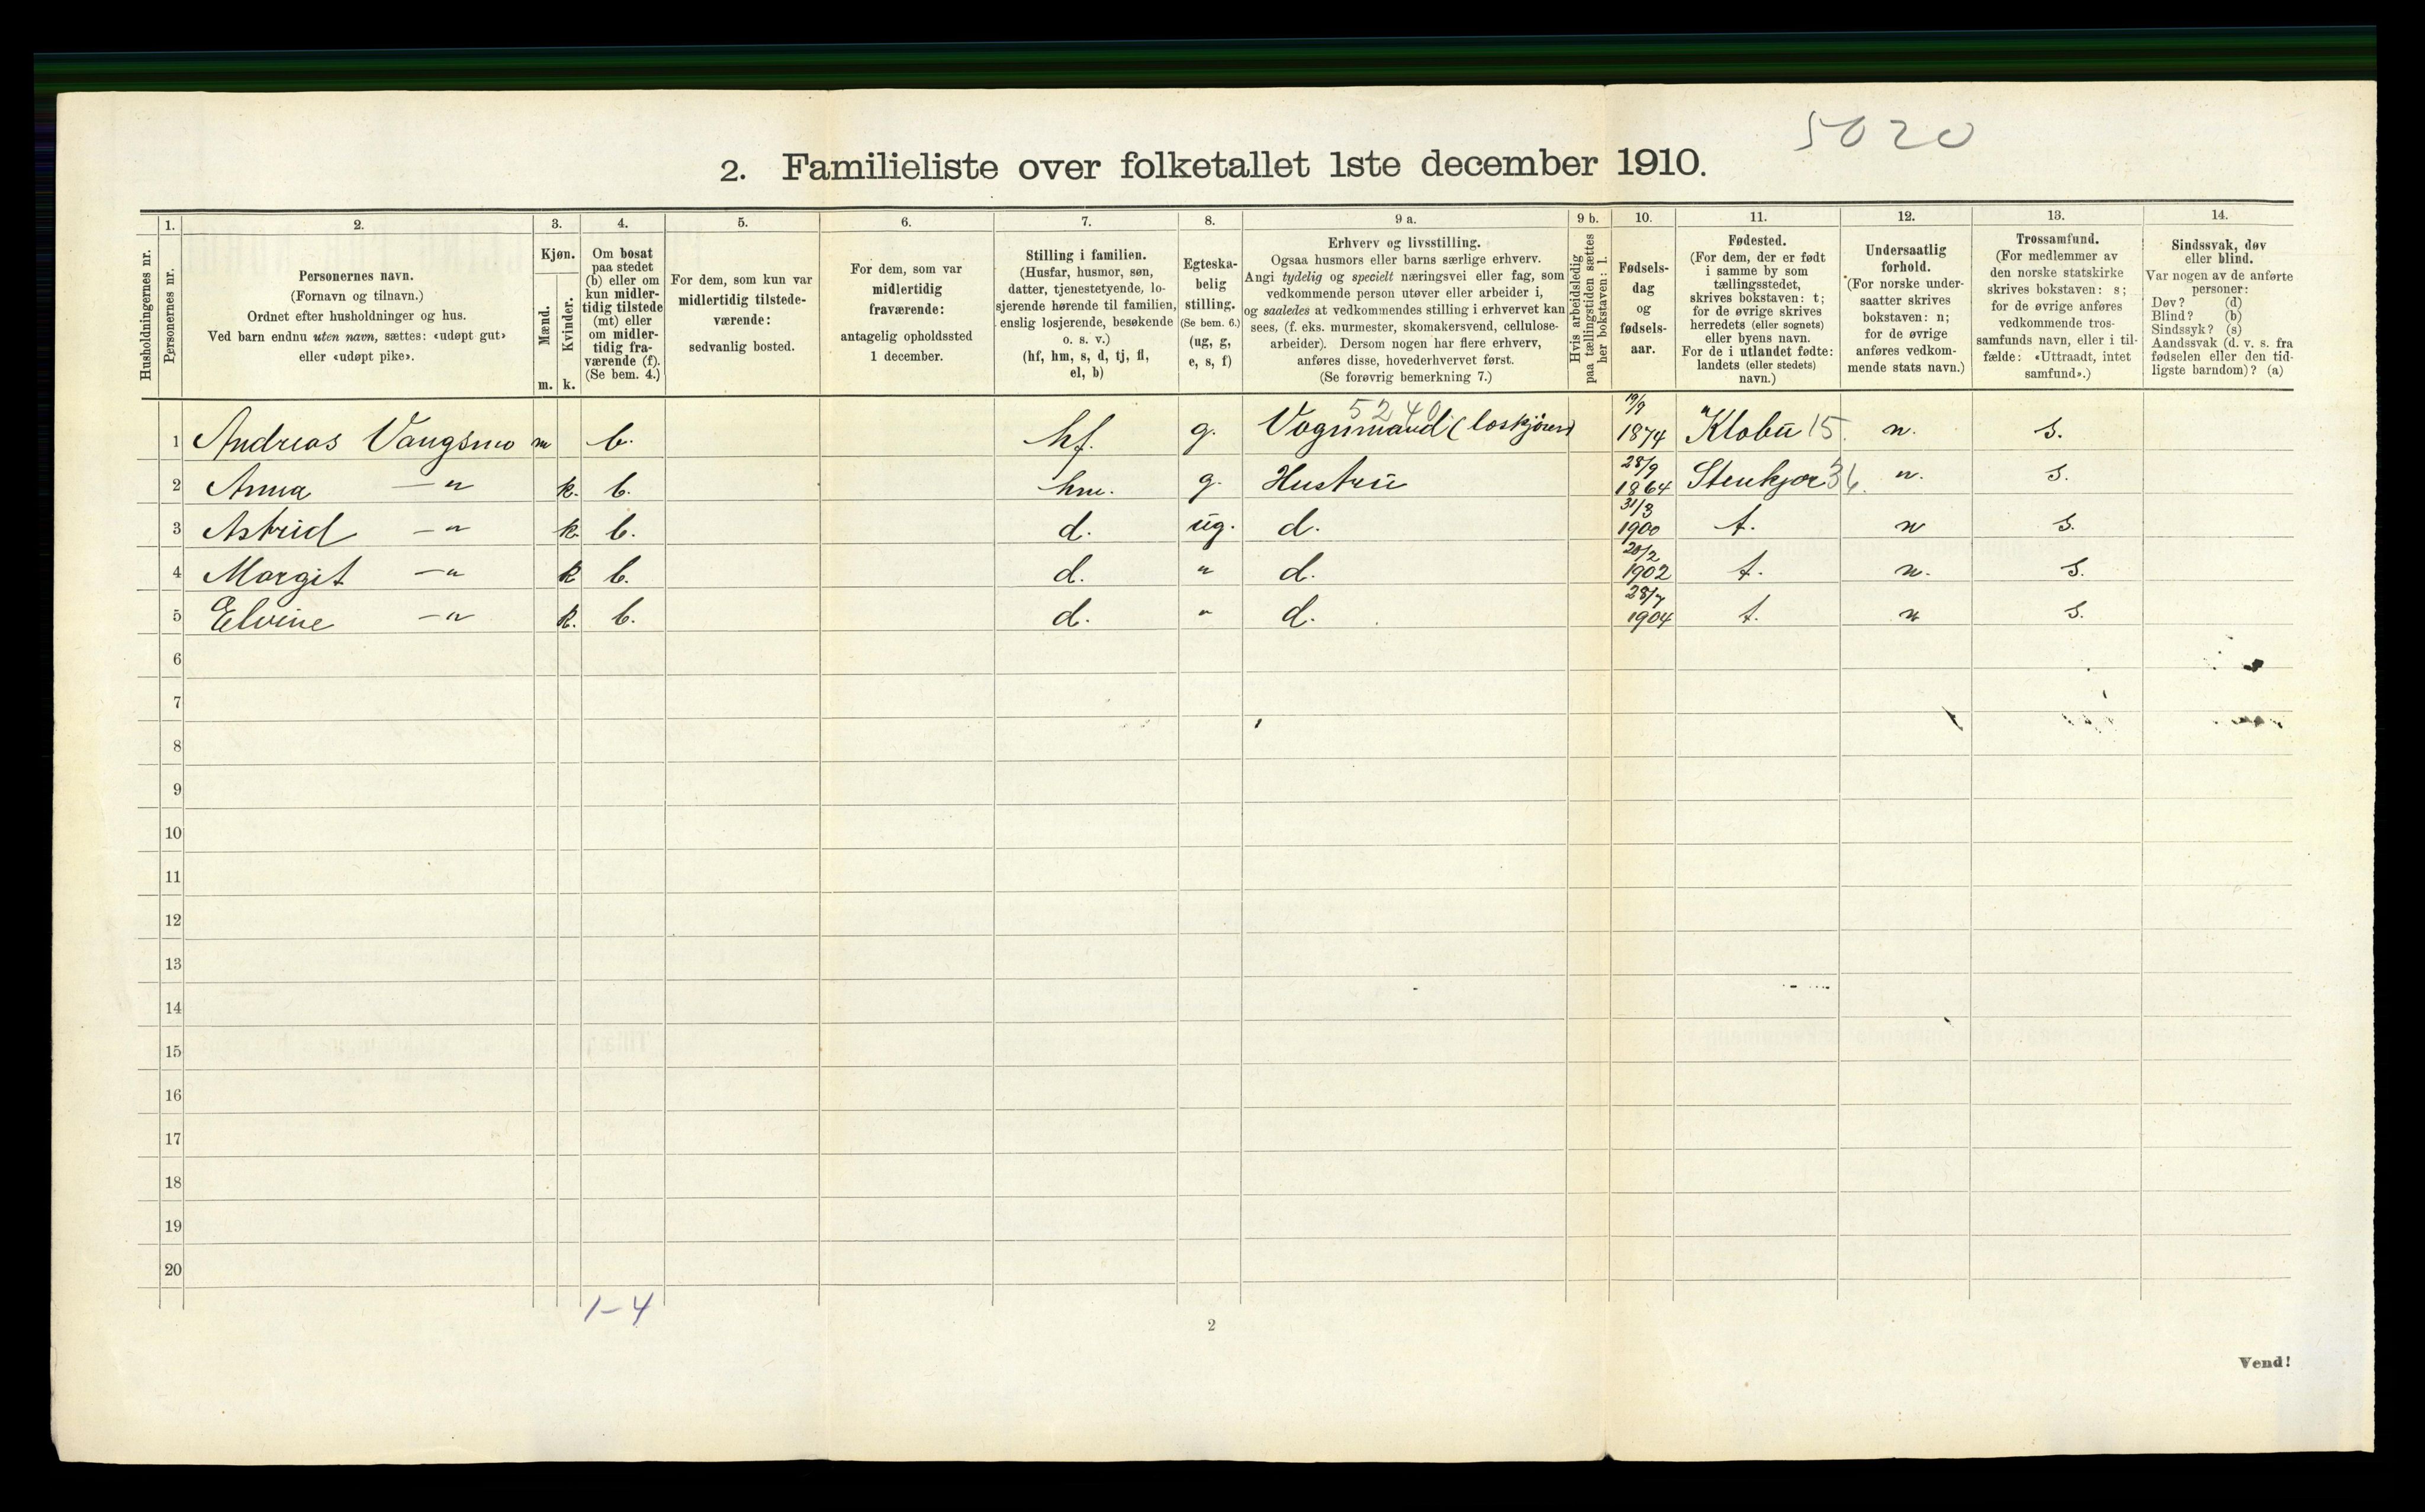 5020
2. Familieliste over folketallet 1ste december 1910.
Husholdningernes nr.
1.
Personernes nr.
2.
Personernes navn.
(Fornavn og tilnavn.)
Ordnet efter husholdninger og hus.
Ved barn endnu uten navn, sættes: «udøpt gut»
eller «udøpt pike».
3.
Kjøn.
Mænd.
Kvinder.
m. k.
4.
Om bosat
paa stedet
(b) eller om
kun midler-
tidig tilstede
(mt) eller
om midler-
tidig fra-
værende (f).
(Se bem. 4.)
5.
For dem, som kun var
midlertidig tilstede-
værende:
sedvanlig bosted.
6.
For dem, som var
midlertidig
fraværende:
antagelig opholdssted
1 december.
7.
Stilling i familien.
(Husfar, husmor, søn,
datter, tjenestetyende, lo-
sjerende hørende til familien,
enslig losjerende, besøkende
o. s. v.)
(hf, hm, s, d, tj, fl,
el, b)
8.
Egteska-
belig
stilling.
(Se bem. 6.)
(ug, g,
e, s, f)
9 a.
Erhverv og livsstilling.
Ogsaa husmors eller barns særlige erhverv.
Angi tydelig og specielt næringsvei eller fag, som
vedkommende person utøver eller arbeider i,
og saaledes at vedkommendes stilling i erhvervet kan
sees, (f. eks. murmester, skomakersvend, cellulose-
arbeider). Dersom nogen har flere erhverv,
anføres disse, hovederhvervet først.
(Se forøvrig bemerkning 7.)
9 b.
Hvis arbeidsledig
paa tællingstiden sættes
her bokstaven: l.
10.
Fødsels-
dag
og
fødsels-
aar.
11.
Fødested.
(For dem, der er født
i samme by som
tællingsstedet,
skrives bokstaven: t;
for de øvrige skrives
herredets (eller sognets)
eller byens navn.
For de i utlandet fødte:
landets (eller stedets)
navn.)
12.
Undersaatlig
forhold.
(For norske under-
saatter skrives
bokstaven: n;
for de øvrige
anføres vedkom-
mende stats navn.)
13.
Trossamfund.
(For medlemmer av
den norske statskirke
skrives bokstaven: s;
for de øvrige anføres
vedkommende tros-
samfunds navn, eller i til-
fælde: «Uttraadt, intet
samfund».)
14.
Sindssvak, døv
eller blind.
Var nogen av de anførte
personer:
Døv? (d)
Blind? (b)
Sindssyk? (s)
Aandssvak (d. v. s. fra
fødselen eller den tid-
ligste barndom)? (a)
5240
1 Andreas Vangsmo m b. hf. g. Vognmand (loskjører) 19/9 1874 Klobu 15. n. s.
2 Anna —" k. b. hm. g. Hustru 28/9 1864 Stenkjær 36. n. s.
3 Astrid —" k. b. d. ug. d. 31/3 1900 t. n s.
4 Margit —" k b. d. " d. 20/2 1902 t. n. s.
5 Elvine —" k. b. d. " d. 28/7 1904 t. n s.
6
7
8
9
10
11
12
13
14
15
16
17
18
19
20
1-4
2
Vend!